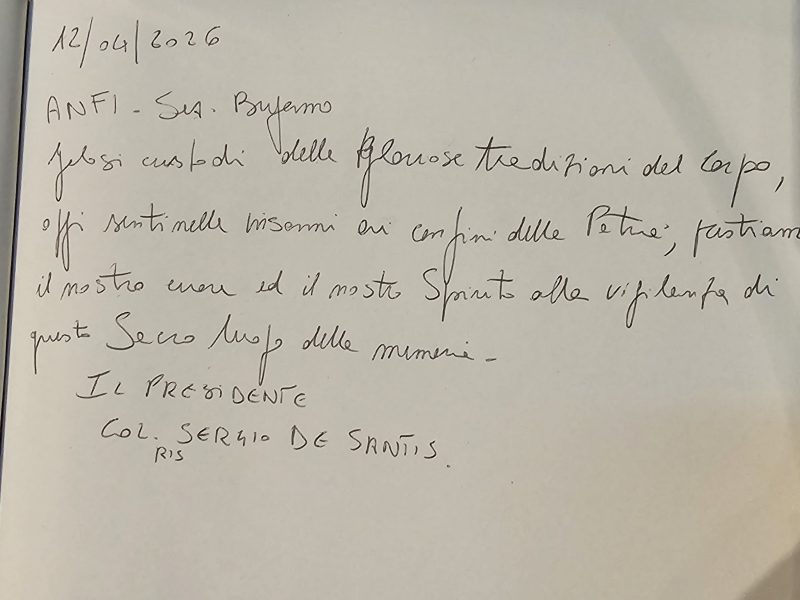 12/04/2026
ANFI - Sez. Bergamo
Gelosi custodi delle gloriose tradizioni del Corpo,
sentinelle ai confini della Patria, prestiamo
il nostro cuore ed il nostro Spirito alla vigilanza di
questo Sacro luogo della memoria -
IL PRESIDENTE
COL. RIS SERGIO DE SANTIS.